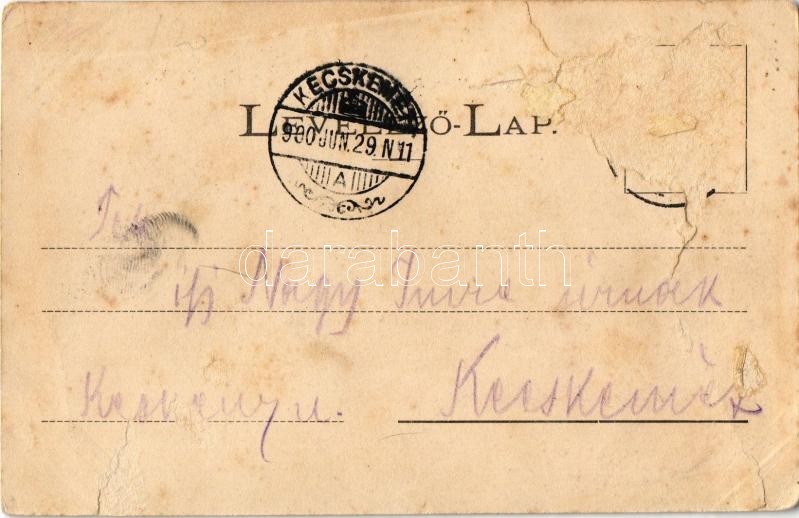 KECSKEMÉT
LEVELEZŐ-LAP.
900 JUN. 29. N 11
A
darabanth
ifj Nagy Imre úrnak
Kecskemét